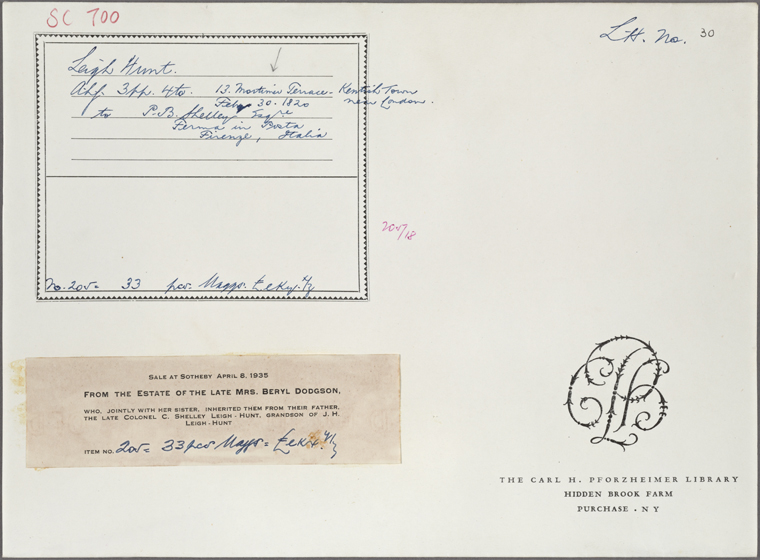 SC 700
L.H. No. 30
Leigh Hunt.
13. Mortimer Terrace - Kentish Town
near London.
Feby 30. 1820
to P.B. Shelley Esqre
Ferma in Posta
Firenze, Italia
205/18
No. 205 = 33 per Maggs.
SALE AT SOTHEBY APRIL 8, 1935
FROM THE ESTATE OF THE LATE MRS. BERYL DODGSON,
WHO, JOINTLY WITH HER SISTER, INHERITED THEM FROM THEIR FATHER,
THE LATE COLONEL C. SHELLEY LEIGH-HUNT, GRANDSON OF J. H.
LEIGH-HUNT
ITEM NO. 205 = 33 per Maggs =
THE CARL H. PFORZHEIMER LIBRARY
HIDDEN BROOK FARM
PURCHASE . N Y